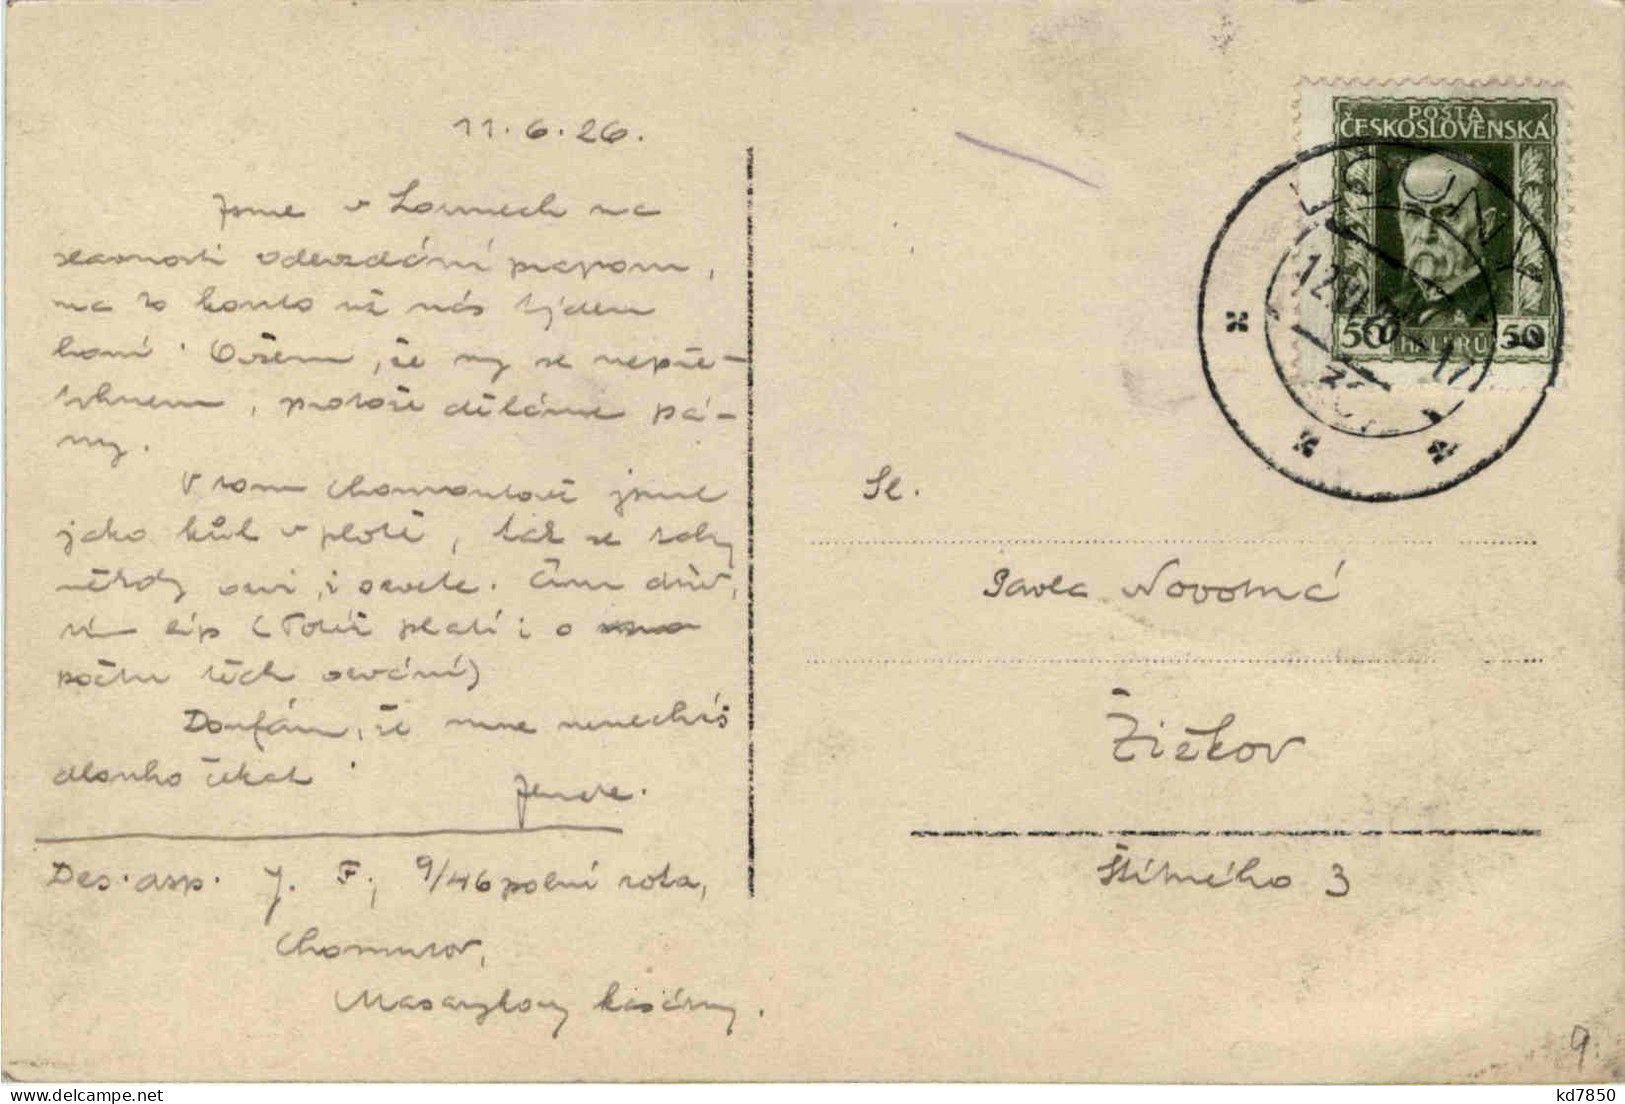 11. 6. 26.
Jsme v Lounech na
slavnosti odevzdání praporu,
na to konto už nás týden
honí. Ovšem, že my se nepře-
trhnem, protože děláme pá-
ny.
V tom Chomoutově jsme
jako kůl v plotě, tak se taky
někdy ozvi, i ozvete. Čím dřív,
tím líp (Totéž platí i o
počtu těch ozvání)
Doufám, že mne nenecháš
dlouho čekat.
Des. asp. J. F., 9/46 polní rota,
Chomutov,
Masarykovy kasárny.
POŠTA
ČESKOSLOVENSKÁ
50 HALÉŘŮ 50
LOUNY
Sl.
Pavla Novotná
Žižkov
Štítného 3
9.
kd7850